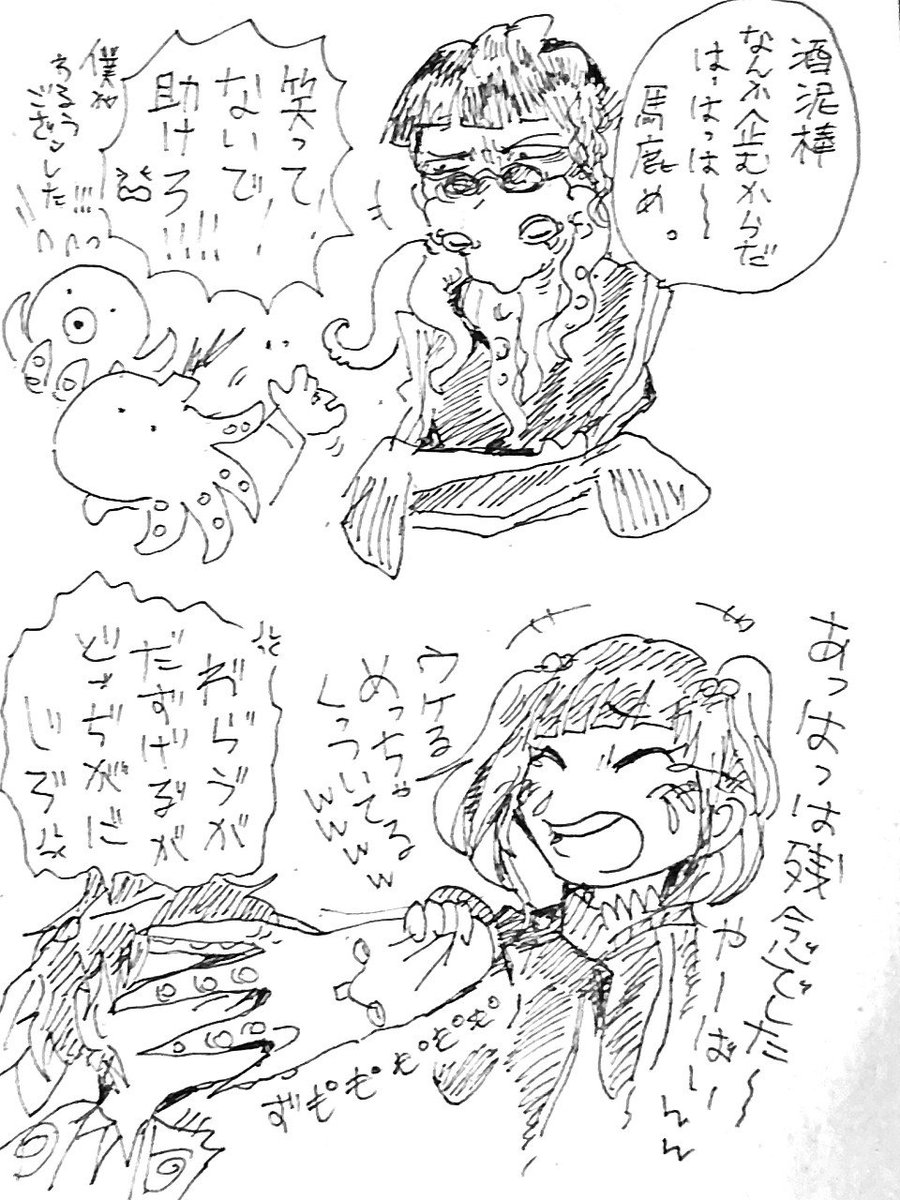 酒泥棒
なんか企むからだ
はーはっは〜〜
馬鹿め。
笑って
ないで
助けろ
!!!!
僕が
わるうござ
ンした!!!
あっはっは残念でした〜〜
やーーばーいんん
ウケる
めっちゃ
くっついてるwwww
わらうが
だずげるが
どっぢがに
じろ
ずももももも